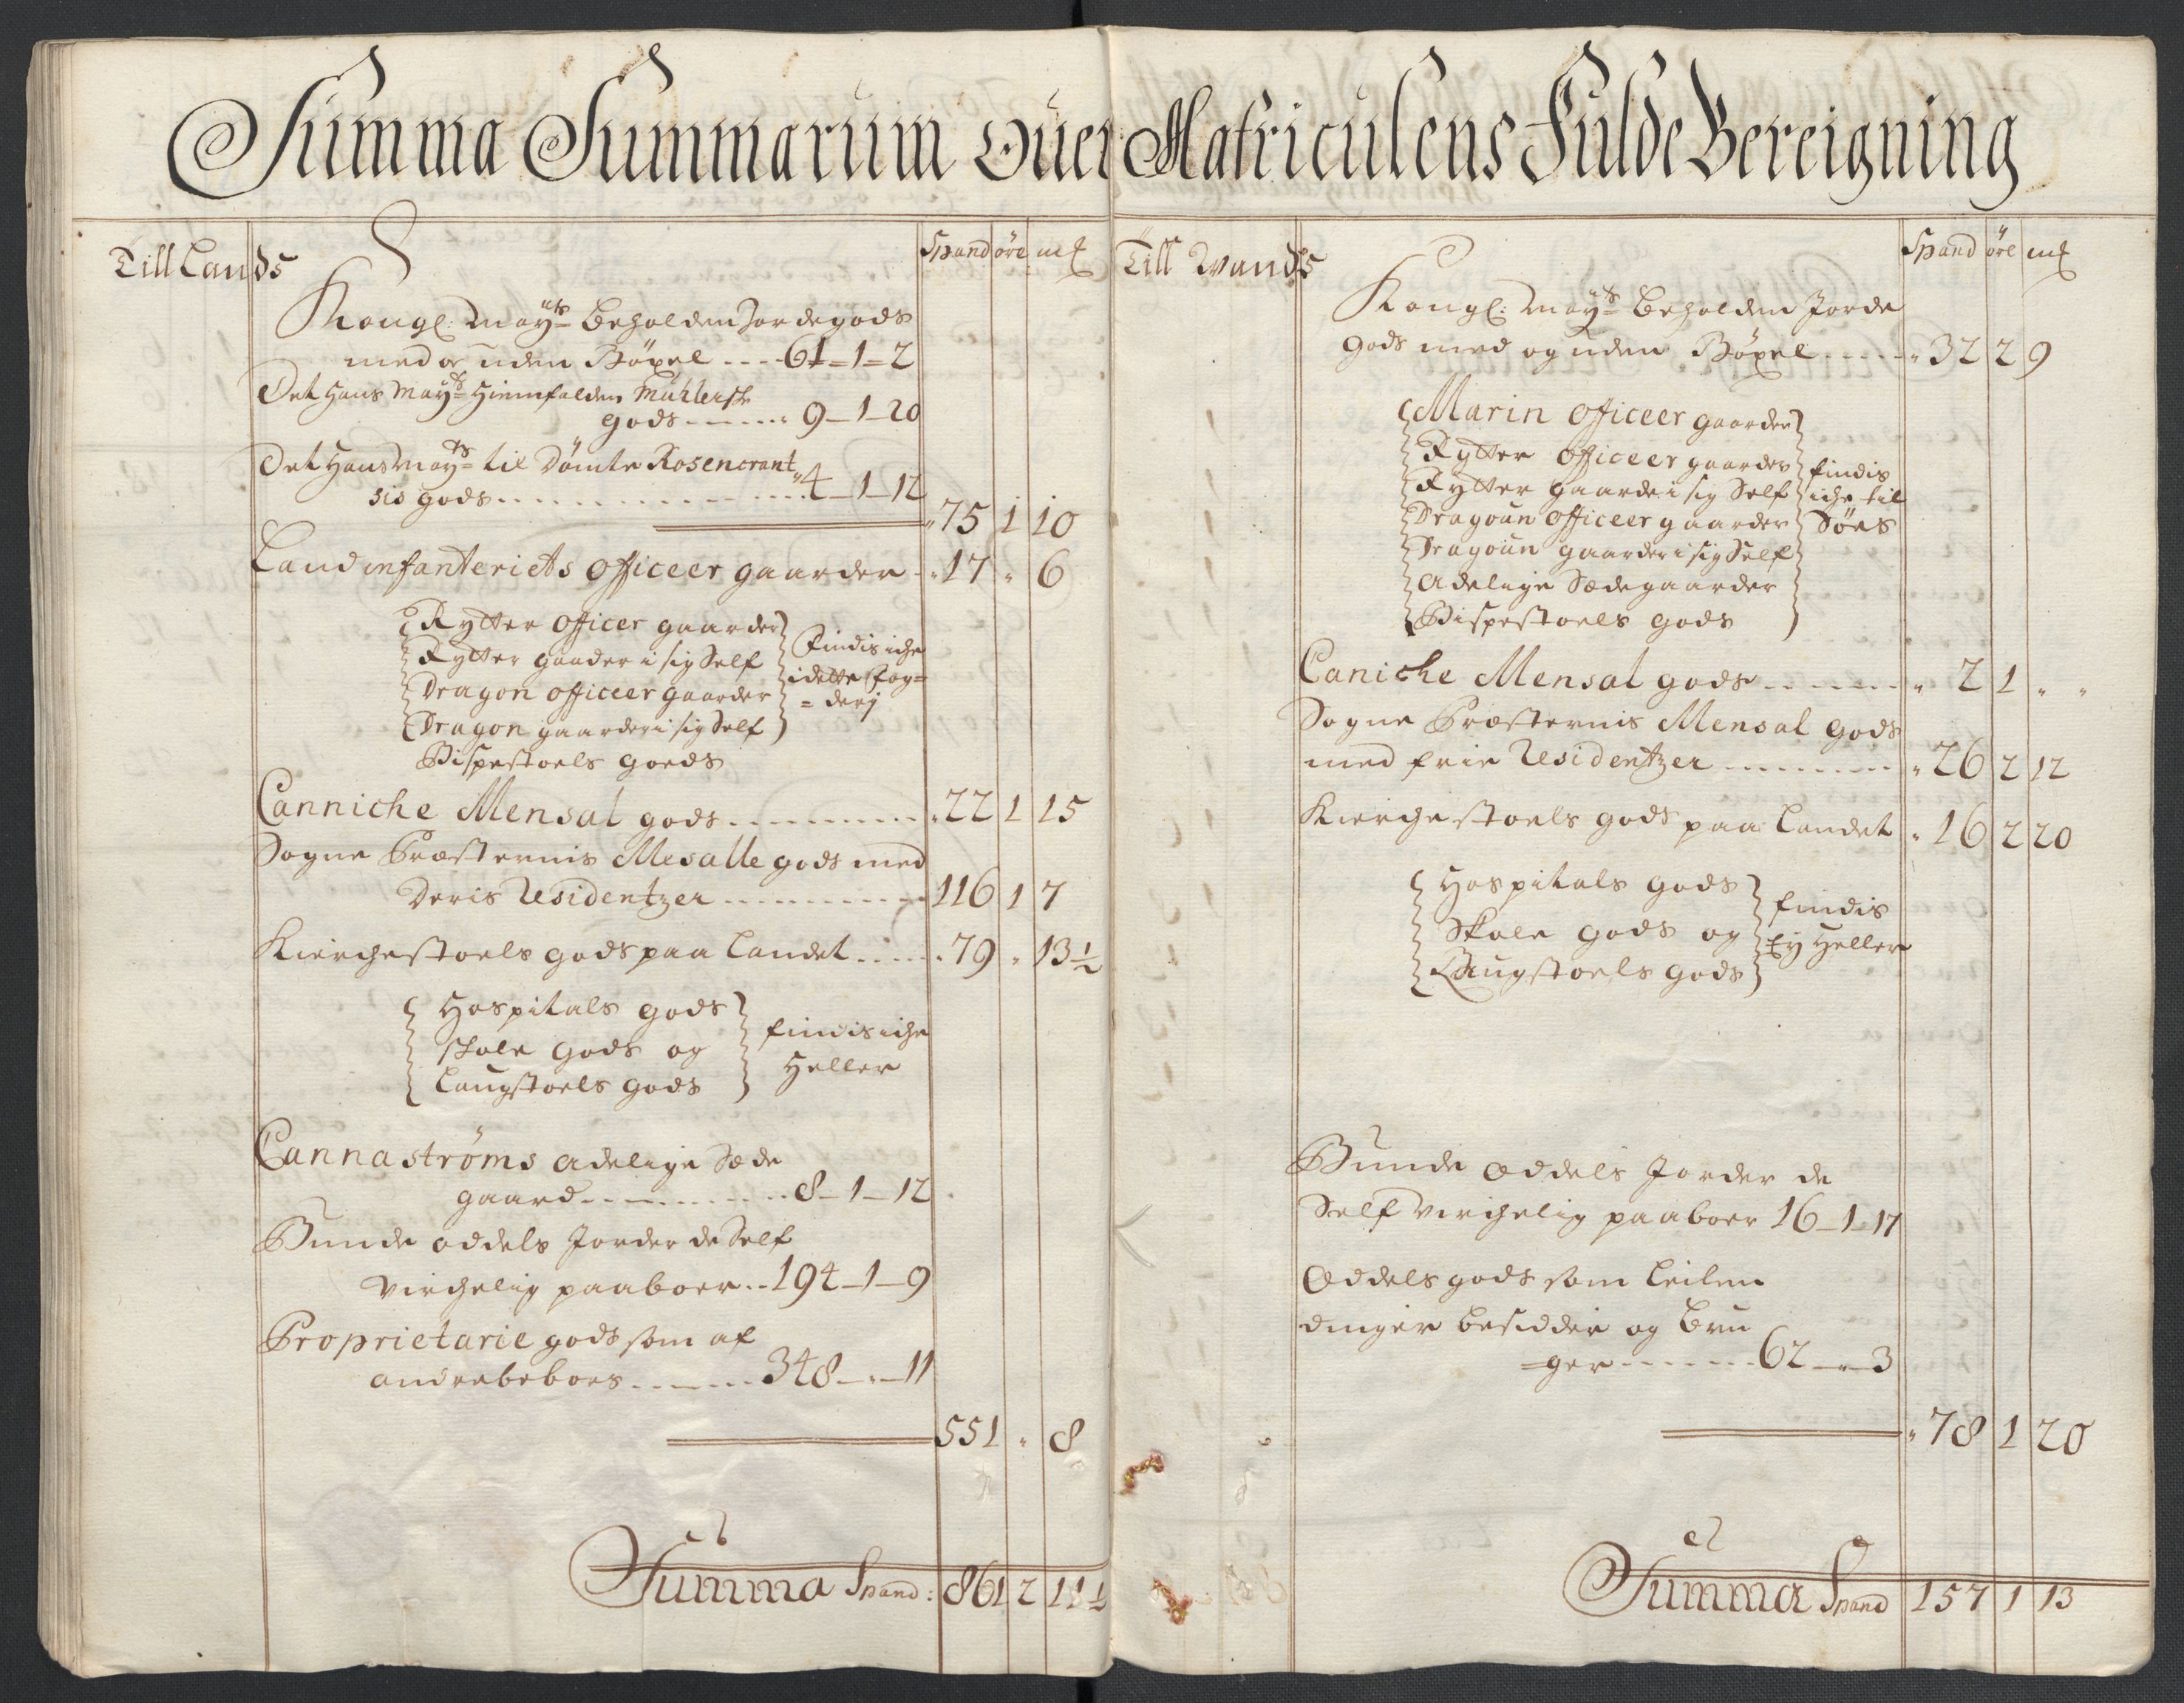 Summa Summarum Ofuer Matriculens Fulde Bereigning
Till Lands
Spand öre ml
Kongl: Mayts beholden Jordegods
med og uden Böxel .... 61-1-2
Det Hans Mayts Hiemfalden Mühlensche
gods ...... 9-1-20
Det Hans Mayts til Dömte Rosencrant
sis gods ........ 4-1-12
75 1 10
Land infanteriets Officeer gaarder .. 17 " 6
Rytter Officer gaarder
Rytter gaader i sig Self
Dragon officeer gaarder
Dragon gaarder i sig Self
Bispestoels goeds
Findis iche
i dette Fog=
=derj
Canniche Mensal gods ........ 22 1 15
Sogne Præsternis Mesalle gods med
Deris Residentzer ........ 116 1 7
Kierchestoels gods paa Landet .... 79 " 13½
Hospitals gods
Skole gods og
Laugstoels gods
findis iche
Heller
Cannaströms adelige Sæde
gaard ........ 8-1-12
Bunde oddels Jorder de Self
virchelig paaboer .. 194-1-9
Proprietarie gods som af
andre beboes ...... 348-"-11
551 " 8
Summa Spand: 861 2 11½
Till Wands
Spand öre ml
Kongl: Mayts beholden Jorde
gods med og uden Böxel ..... 32 2 9
Marin Officeer gaarder
Rytter Officeer gaarder
Rytter gaarder i sig Self
Dragoun Officeer gaarder
Dragoun gaarder i sig Self
Adelige Sædegaarder
Bispestoels gods
findis
iche til
Söes
Caniche Mensal gods ....... 2 1 "
Sogne Præsternis Mensal gods
med frie Residentzer ........ 26 2 12
Kierchestoels gods paa Landet " 16 2 20
Hospitals gods
Skole gods og
Laugstoels gods
findis
Ey Heller
Bunde oddels Jorder de
Self virchelig paaboer 16-1-17
Oddels gods som Leilen
dinger besidder og bru
=ger ...... 62-"-3
78 1 20
Summa Spand 157 1 13